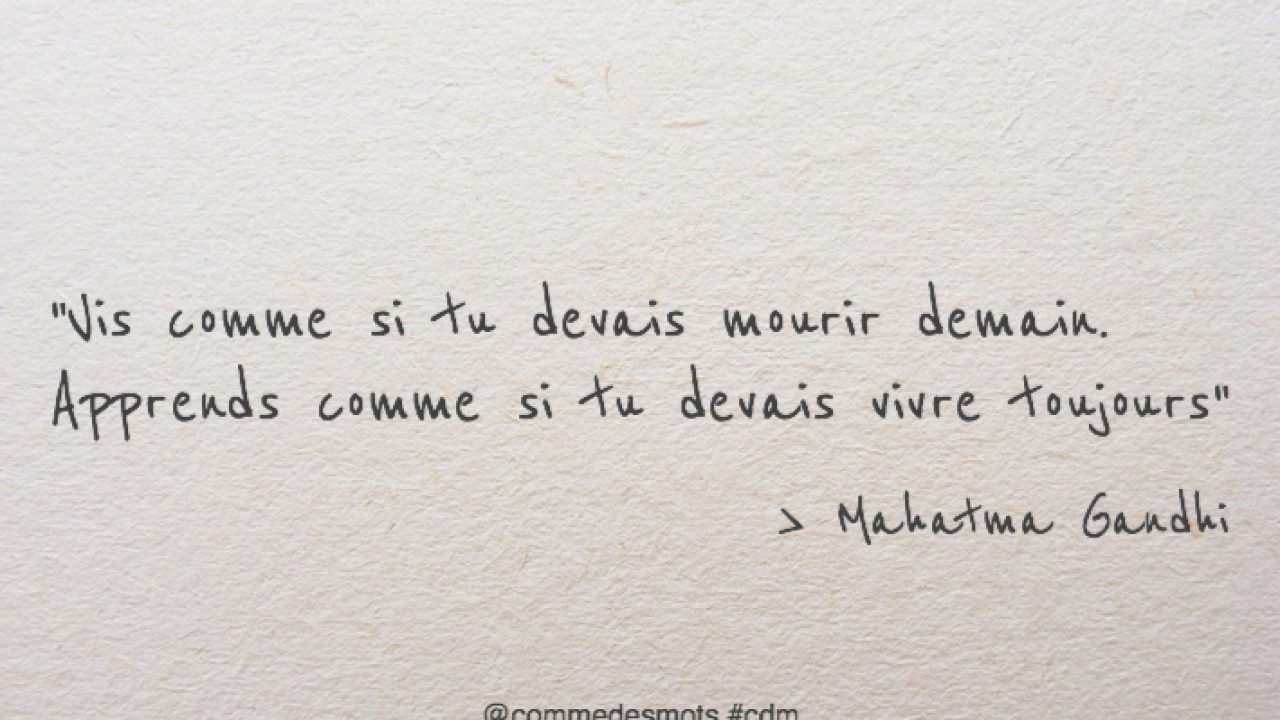 "Vis comme si tu devais mourir demain.
Apprends comme si tu devais vivre toujours"
> Mahatma Gandhi
@commedesmots #cdm